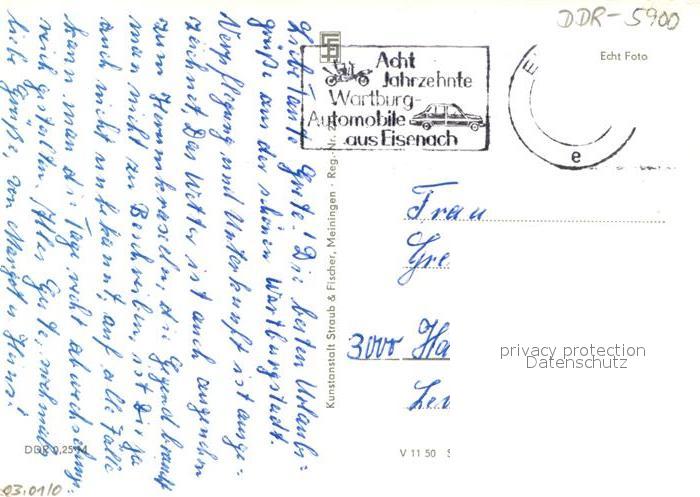 DDR-5900
Echt Foto
Acht
Jahrzehnte
Wartburg-
Automobile
aus Eisenach
e
Liebe Tante Grete! Die besten Urlaubs=
grüße aus der schönen Wartburgstadt.
Verpflegung und Unterkunft ist ausge=
zeichnet. Das Wetter ist auch angenehm
zum Herumkraxeln, die Gegend braucht
man nicht zu beschreiben, ist Dir ja
auch nicht unbekannt, auf alle Fälle
kann man die Tage recht abwechslungs=
reich gestalten. Alles Gute, nochmals
liebe Grüße, von Margot u. Heinz!
Kunstanstalt Straub & Fischer, Meiningen · Reg.-Nr.
Frau
Gre
3000 Ha
privacy protection
Datenschutz
DDR 0,25 M
V 11 50
03.01/0